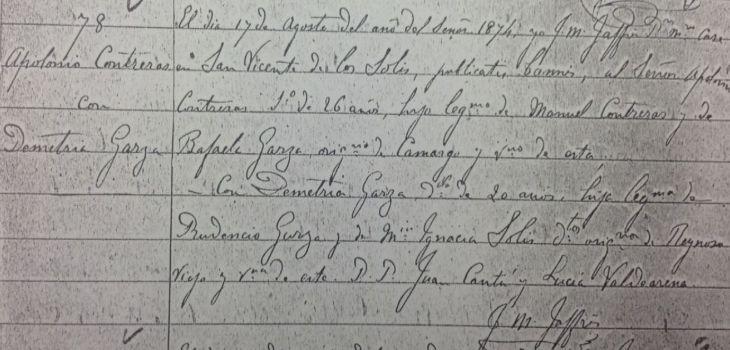 78
Apolonio Contreras
con
Demetria Garza
El dia 17 de Agosto del año del Señor 1874, yo J. M. Jaffrés P.e m.o case
en San Vicente de los Solis, publicatis bannis, al Señor Apolonio
Contreras s.o de 26 años, hijo leg.mo de Manuel Contreras y de
Rafaela Garza, orig.rio de Camargo y v.no de esta
— Con Demetria Garza d.lla de 20 anos, hija leg.ma de
Prudencio Garza y de M.a Ignacia Solis d.tos orig.ria de Reynosa
Viejo y v.na de esta P. P. Juan Cantú y Lucia Valdearena
J. M. Jaffrés